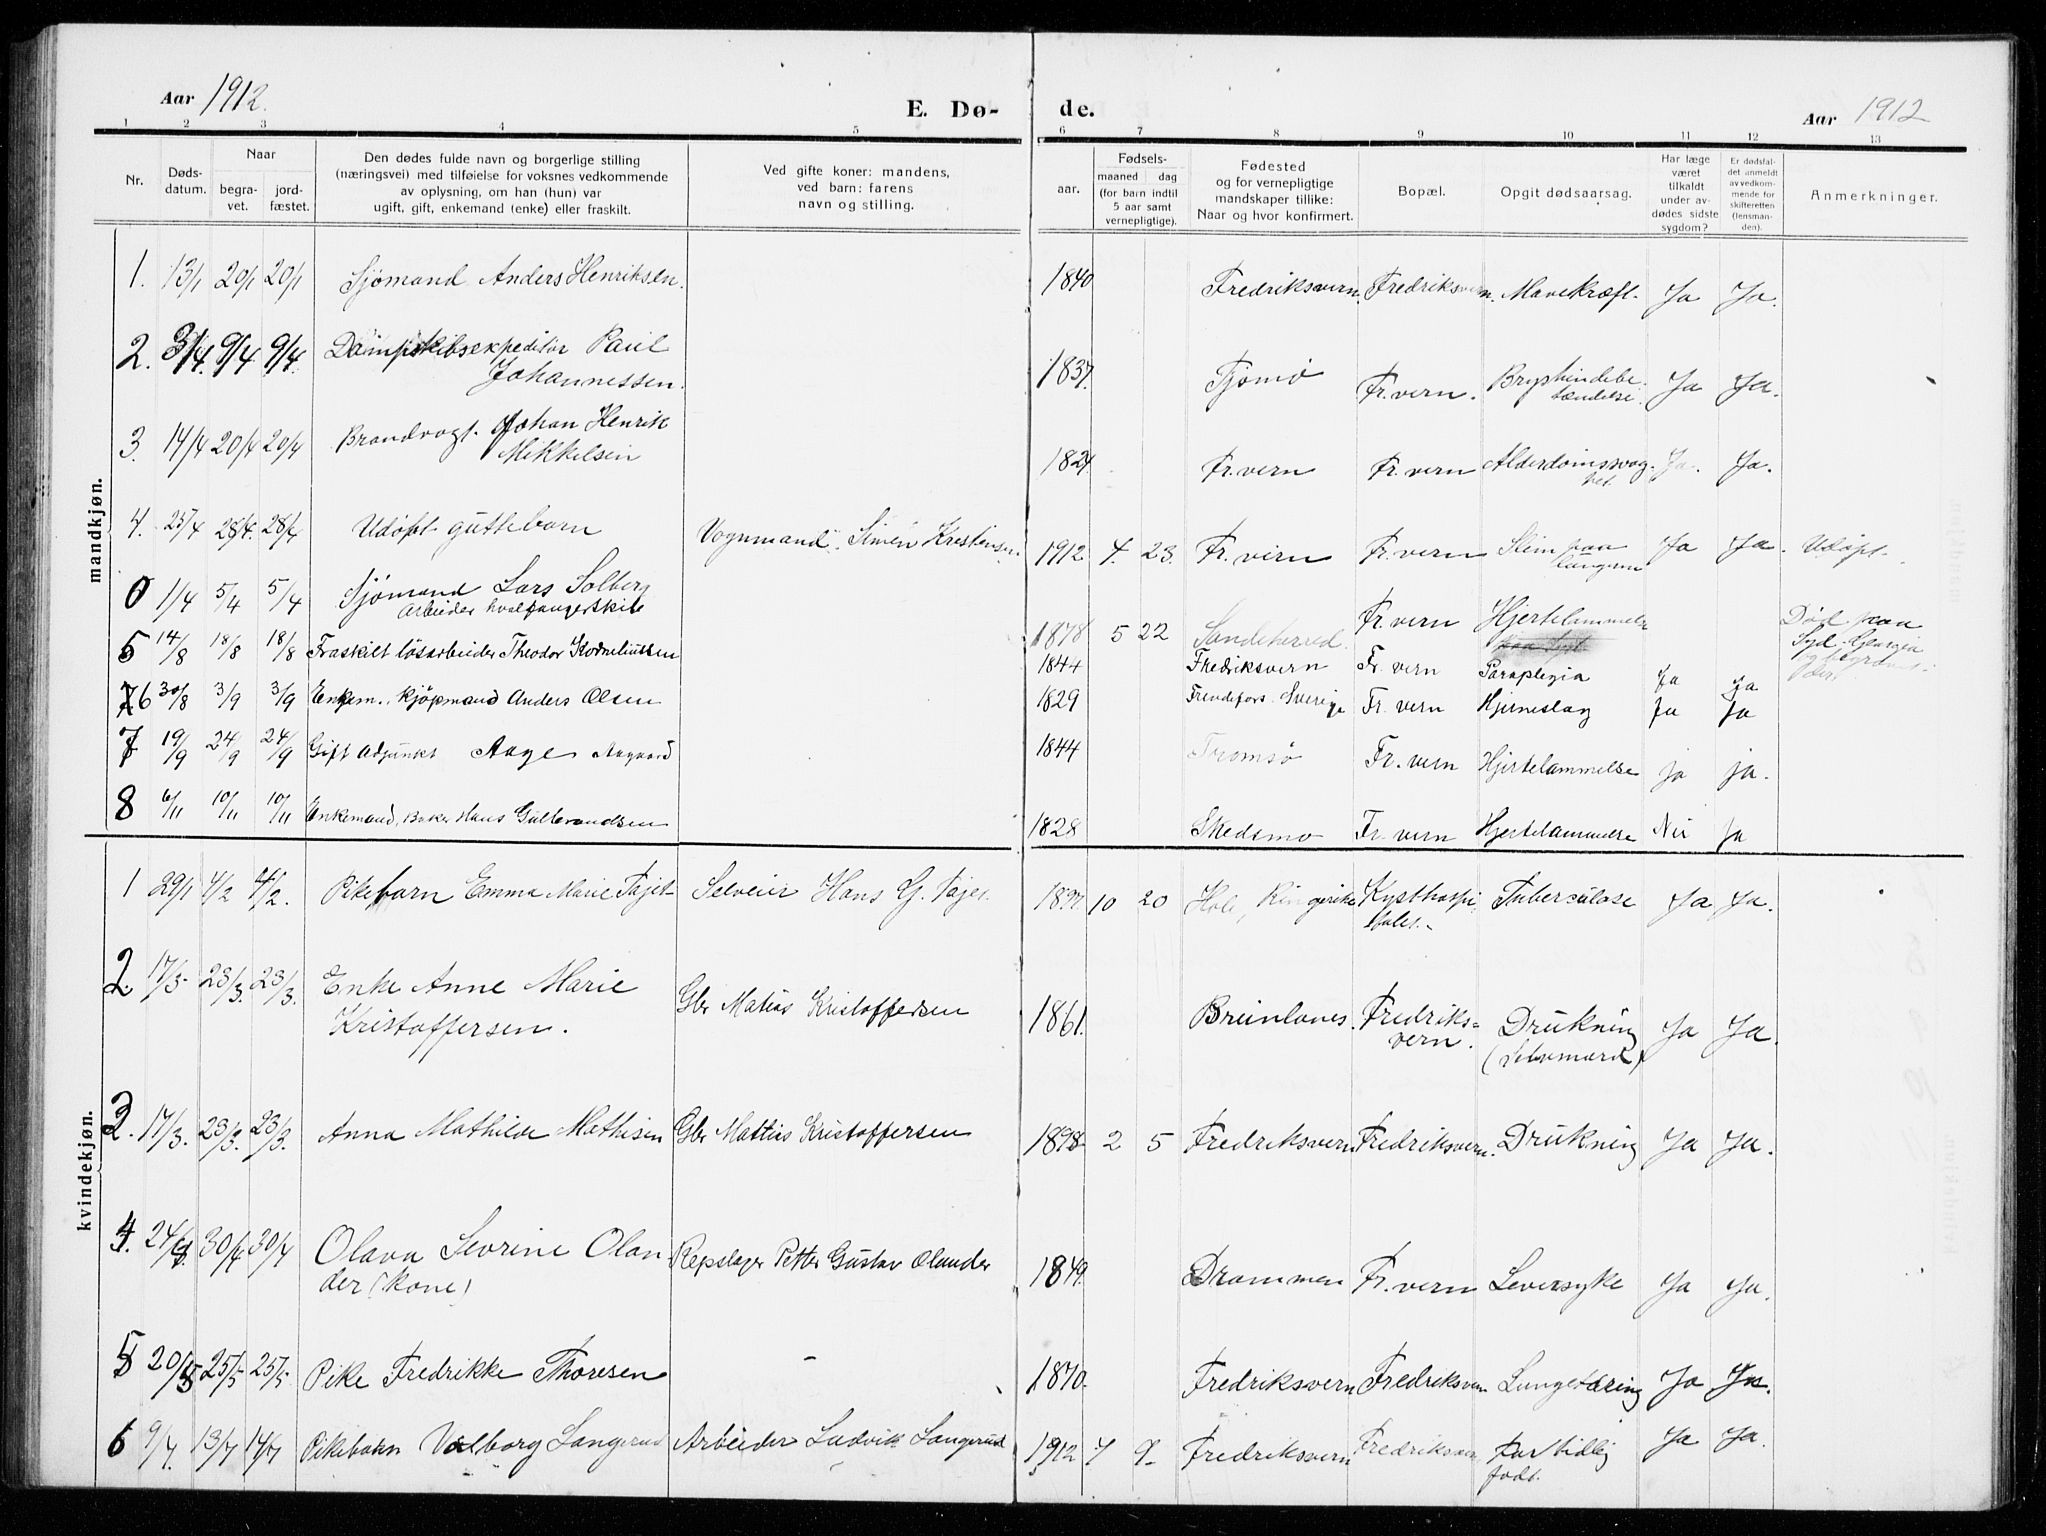 Aar 1912.
E. Dø- de.
Aar 1912
1 2 3 4 5 6 7 8 9 10 11 12 13
Nr.
Døds-
datum.
Naar
begra-
vet.
jord-
fæstet.
Den dødes fulde navn og borgerlige stilling
(næringsvei) med tilføielse for voksnes vedkommende
av oplysning, om han (hun) var
ugift, gift, enkemand (enke) eller fraskilt.
Ved gifte koner: mandens,
ved barn: farens
navn og stilling.
aar.
Fødsels-
maaned dag
(for barn indtil
5 aar samt
vernepligtige).
Fødested
og for vernepligtige
mandskaper tillike:
Naar og hvor konfirmert.
Bopæl.
Opgit dødsaarsag.
Har læge
været
tilkaldt
under av-
dødes sidste
sygdom?
Er dødsfal-
det anmeldt
av vedkom-
mende for
skifteretten
(lensman-
den).
Anmerkninger.
mandkjøn.
1. 13/1 20/1 20/1 Sjømand Anders Henriksen. 1840 Fredriksvern. Fredriksvern. Mavekræft. Ja Ja.
2. 3/4. 9/4 9/4. Dampskibsexpeditør Paul
Johannessen. 1837. Tjømø Fr. vern. Brysthindebe-
tændelse. Ja Ja.
3. 14/4 20/4 20/4 Brandvogt. Johan Henrik
Mikkelsen 1824 Fr. vern Fr. vern Alderdomssvag-
het. Ja. Ja.
4. 25/4 28/4. 28/4 Udøpt guttebarn Vognmand Simen Kristensen. 1912 4. 23. Fr. vern Fr. vern Slim paa
lungerne Ja Ja. Udøpt.
0 1/4 5/4 5/4 Sjømand Lars Solberg
Arbeider hvalfangerskibe 1878 5 22 Sandeherred. Fr. vern Hjertelammelse Død paa
Syd. Georgia
og begravet
der.
5 14/8 18/8 18/8 Fraskilt løsarbeider Theodor Korneliussen 1844 Fredriksvern Fr. vern Paraplegia Ja Ja
6 30/8 3/9 3/9 Enkem., kjøpmand Anders Olsen 1829 Sverige Fr. vern Hjerneslag Ja Ja
7 19/9 24/9 24/9 Gift adjunkt Aage Aagaard 1844 Tromsø Fr. vern Hjertelammelse ja ja.
8 6/11 10/11 10/11 Enkemand, Baker Hans Gulbrandsen 1828 Skedsmo Fr. vern Hjertelammelse Nei Ja
kvindekjøn.
1 29/1 4/2 4/2. Pikebarn Emma Marie Fajet Selveier Hans G. Fajet. 1897 10 20 Hole, Ringerike Kysthospi-
talet. Tuberculose Ja Ja.
2. 17/3 23/3. 23/3. Enke Anne Marie
Kristoffersen. Gbr Matias Kristoffersen 1861. Brunlanes. Fredriks-
vern. Drukning
(Selvmord) Ja Ja.
3. 17/3. 23/3. 23/3. Anna Mathilde Mathisen Gbr Mattias Kristoffersen 1898 2 5 Fredriksvern Fredriksvern. Drukning Ja Ja.
4. 24/4. 30/4 30/4 Olava Sevrine Olan-
der (kone) Repslager Petter Gustav Olander 1849. Drammen Fr. vern Leversyke Ja Ja.
5 20/5 25/5 25/5 Pike Fredrikke Thoresen - 1870. Fredriksvern Fredriksvern Lungetæring Ja Ja.
6 9/7. 13/7 14/7 Pikebarn Valborg Langerud Arbeider Ludvik Langerud 1912 7 9 Fredriksvern Fredriksvern For tidlig
født. Ja Ja.